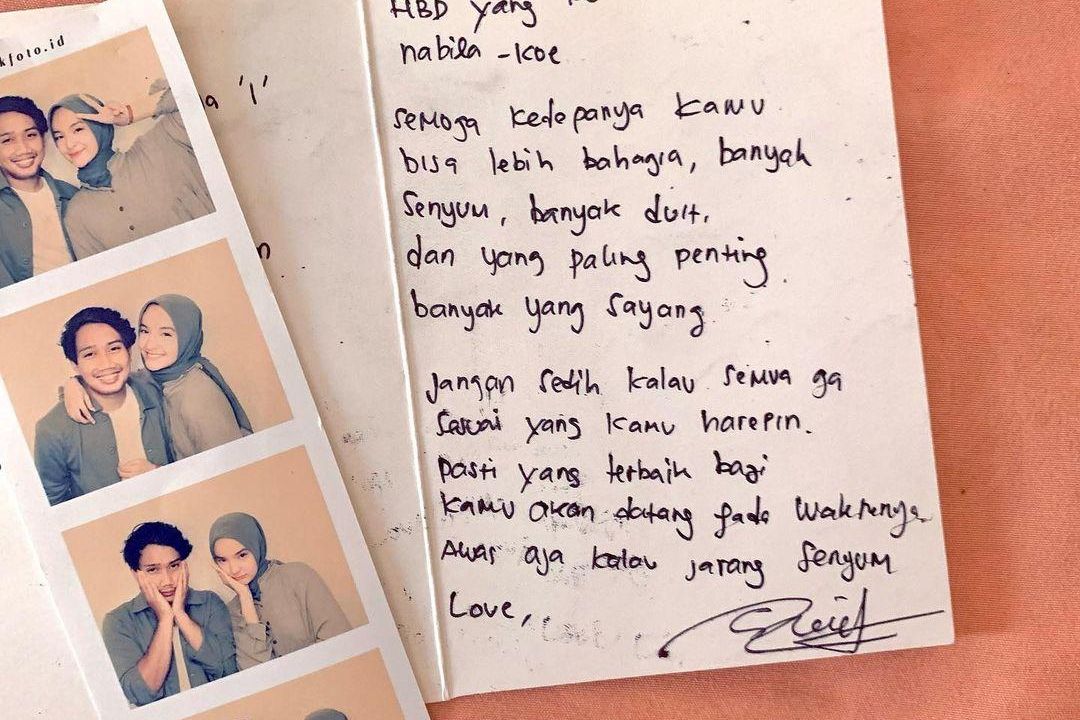 kfoto.id
a '1'
n
HBD yang
nabila -koe
semoga kedepanya kamu
bisa lebih bahagia, banyak
senyum, banyak duit,
dan yang paling penting
banyak yang sayang
Jangan sedih kalau semua ga
sesuai yang kamu harepin.
pasti yang terbaik bagi
kamu akan datang pada waktunya
Awas aja kalau jarang senyum
Love,